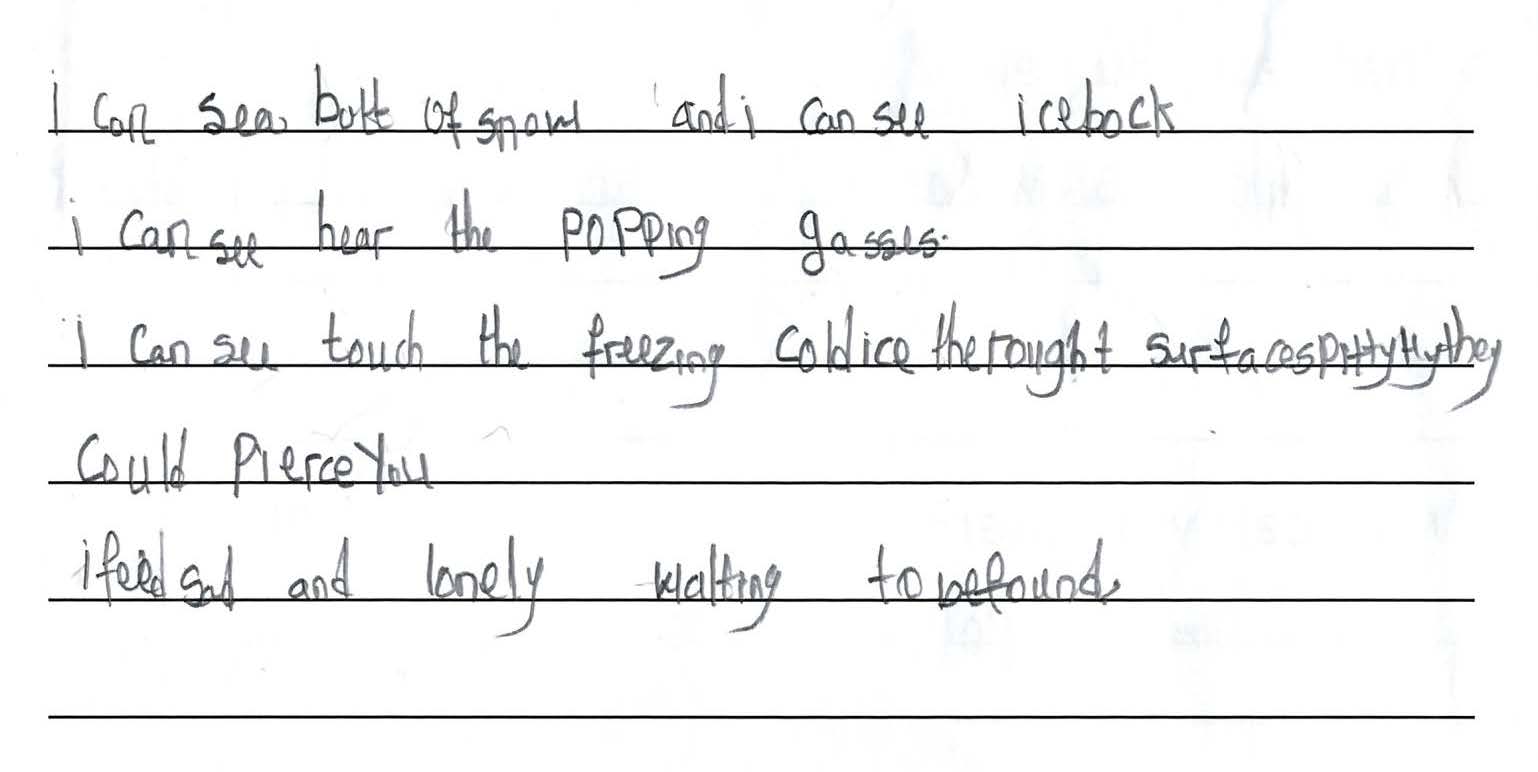 i can sea bolt of snow and i can see icebock
i can see hear the popping gasses.
i can see touch the freezing coldice therought surfaces they
could pierce you
i feeld sad and lonely waiting to befound